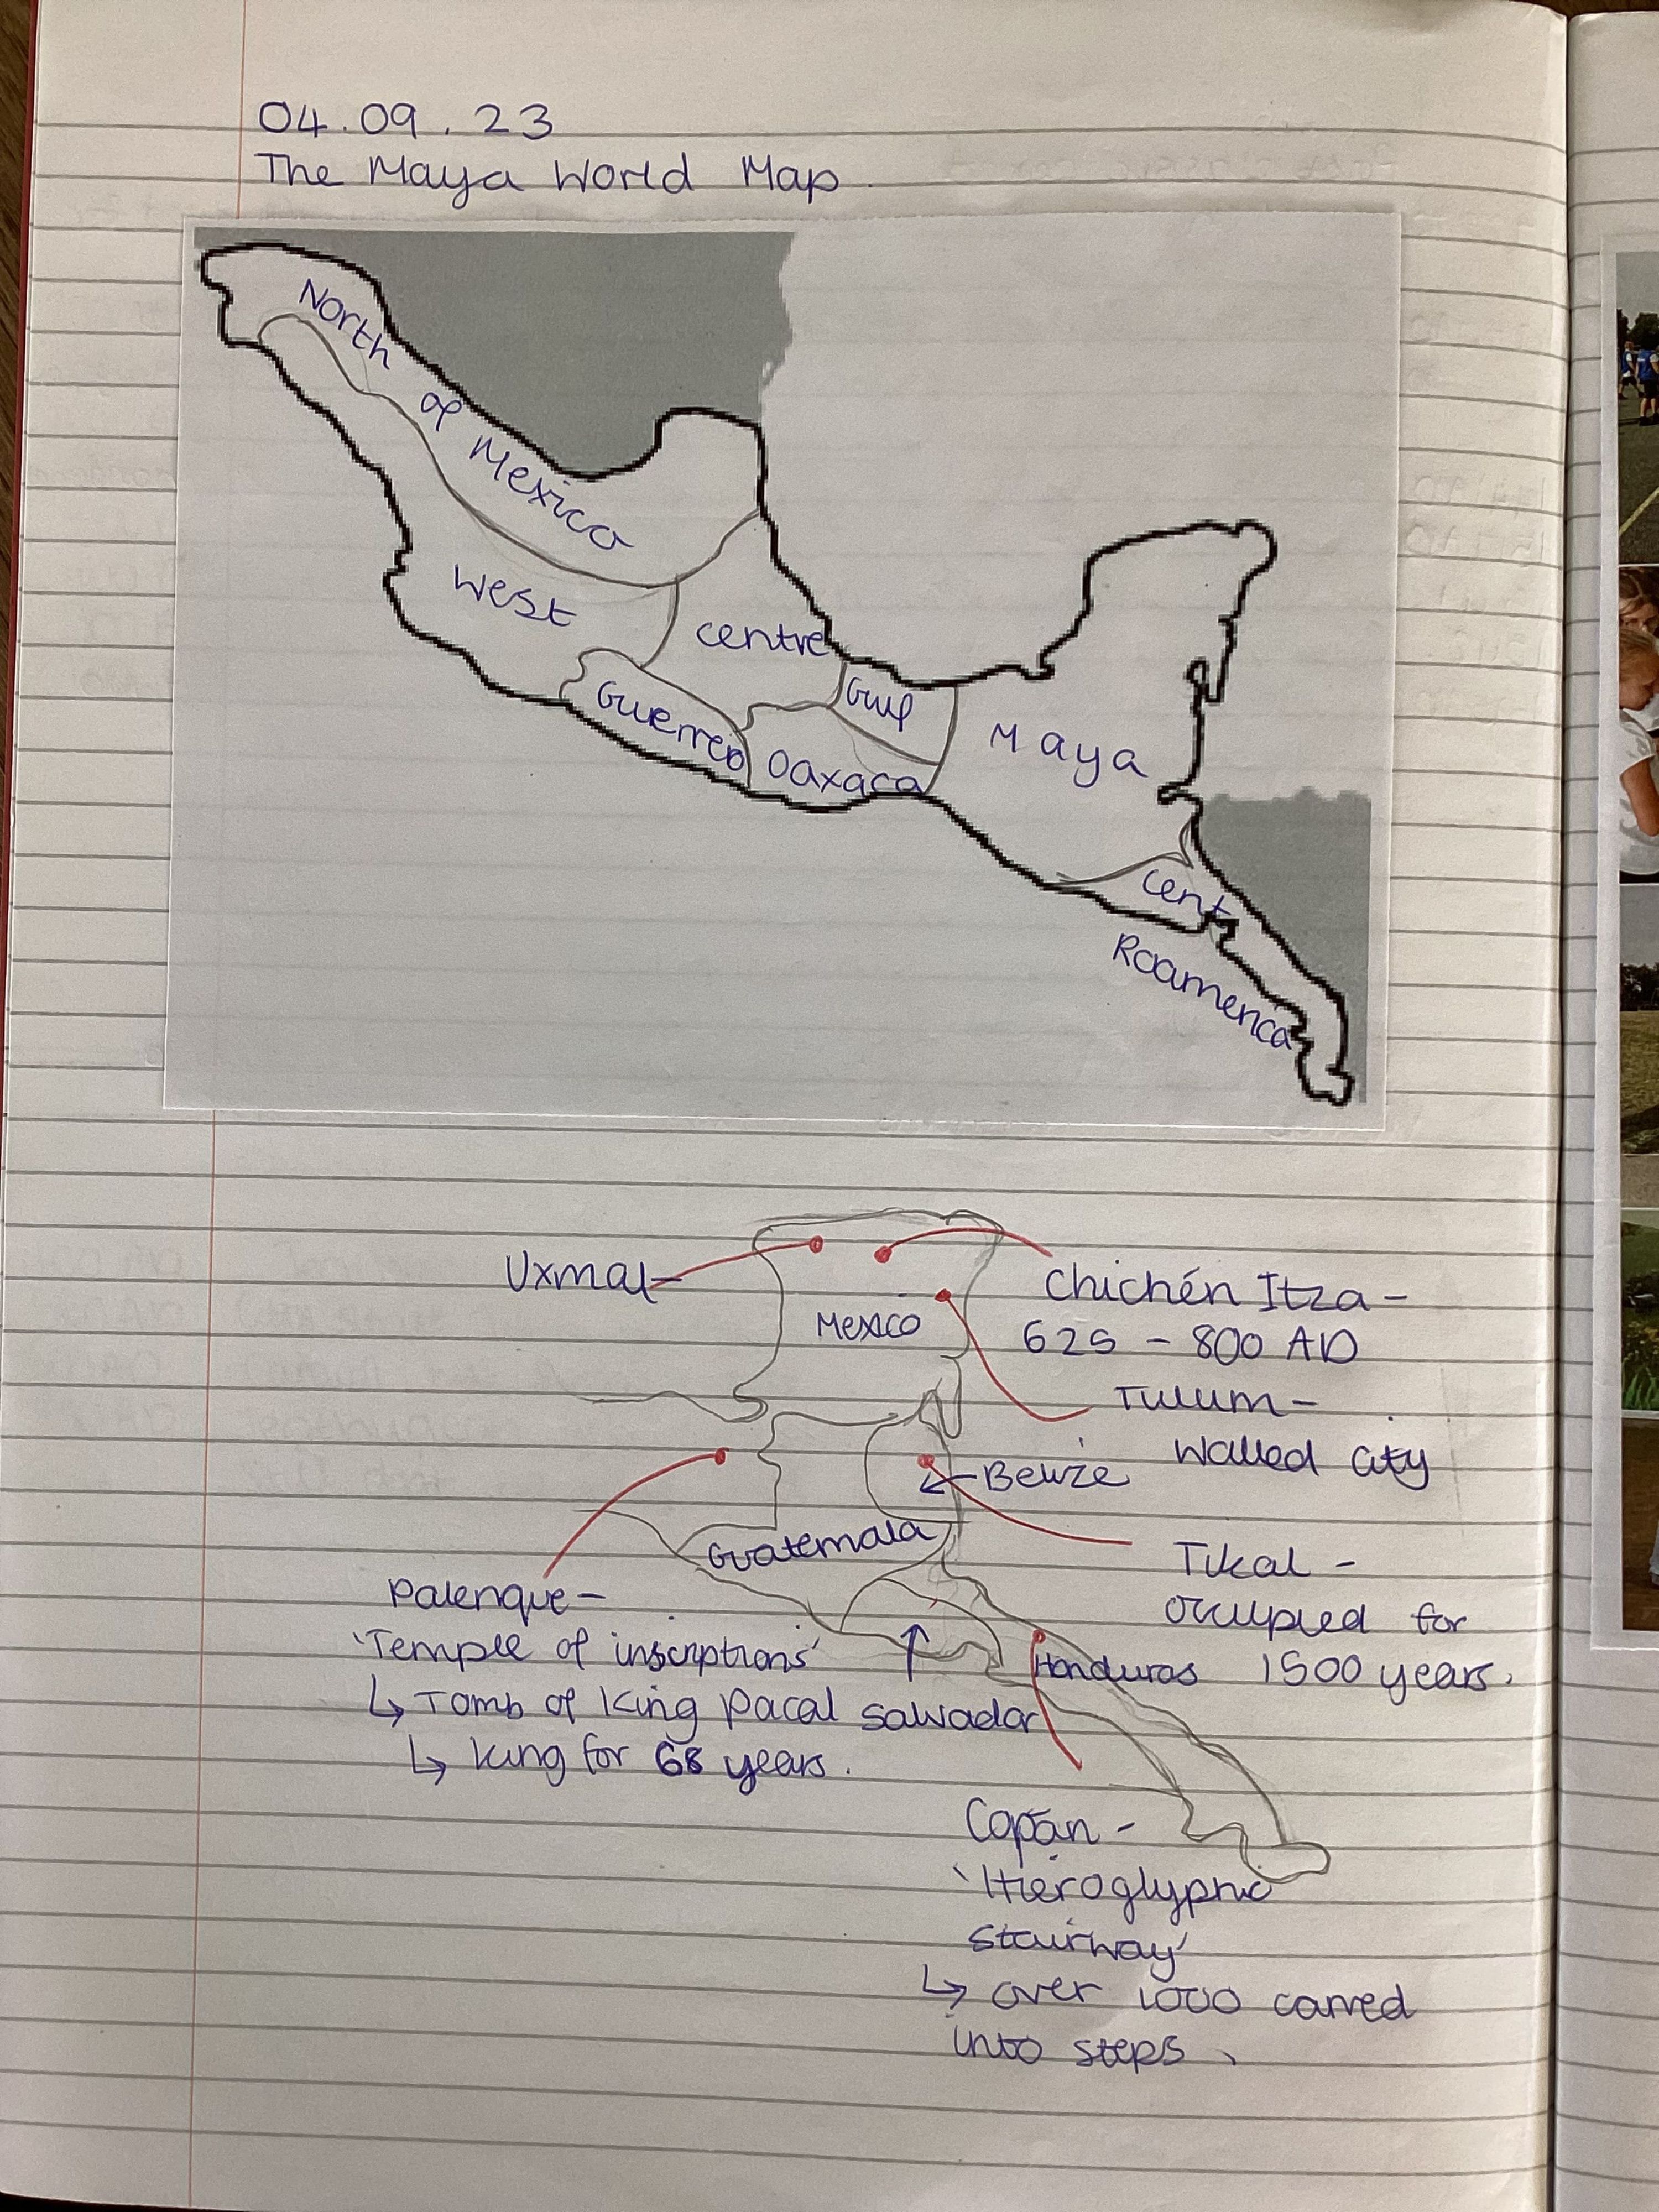 04.09.23
The Maya World Map.
North
of
Mexico
West
Centre
Gulf
Guerrero
Oaxaca
Maya
Cent
Roamerica
Uxmal-
Chichén Itza -
625 - 800 AD
Mexico
Tulum -
Walled City
Belize
Guatemala
Tikal -
Occupied for
1500 years.
Palenque -
'Temple of inscriptions'
↳ Tomb of King Pacal
↳ King for 68 years.
Salvador
Honduras
Copán -
'Hieroglyphic
Stairway'
↳ over 1000 carved
into steps.